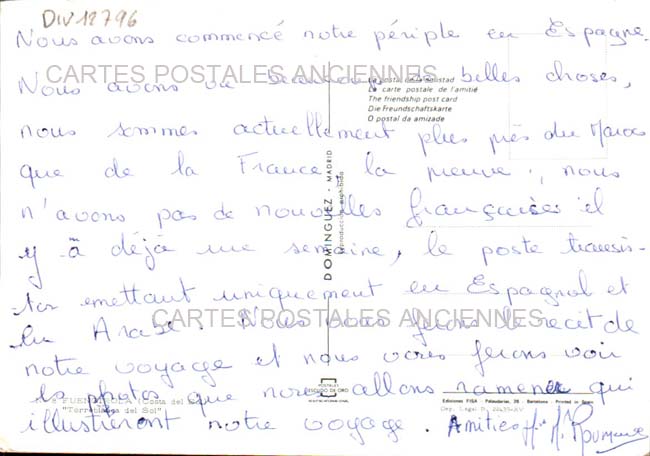 DIV12796
Nous avons commencé notre périple en Espagne.
CARTES POSTALES ANCIENNES
Nous avons vu beaucoup de belles choses,
La carte postale de l'amitié
The friendship post card
Die Freundschaftskarte
O postal da amizade
nous sommes actuellement plus près du Maroc
que de la France la preuve, nous
n'avons pas de nouvelles françaises il
y à déjà une semaine, le poste transis-
tor emettant uniquement en Espagnol et
en Arabe. Nous vous ferons le recit de
CARTES POSTALES ANCIENNES
notre voyage et nous vous ferons voir
les photos que nous allons ramener qui
illustreront notre voyage. Amitiés
DOMINGUEZ - MADRID
POSTALES
ESCUDO DE ORO
FUENGIROLA (Costa del Sol)
"Torreblanca del Sol"
Ediciones FISA Palaudarias, 26 - Barcelona - Printed in Spain